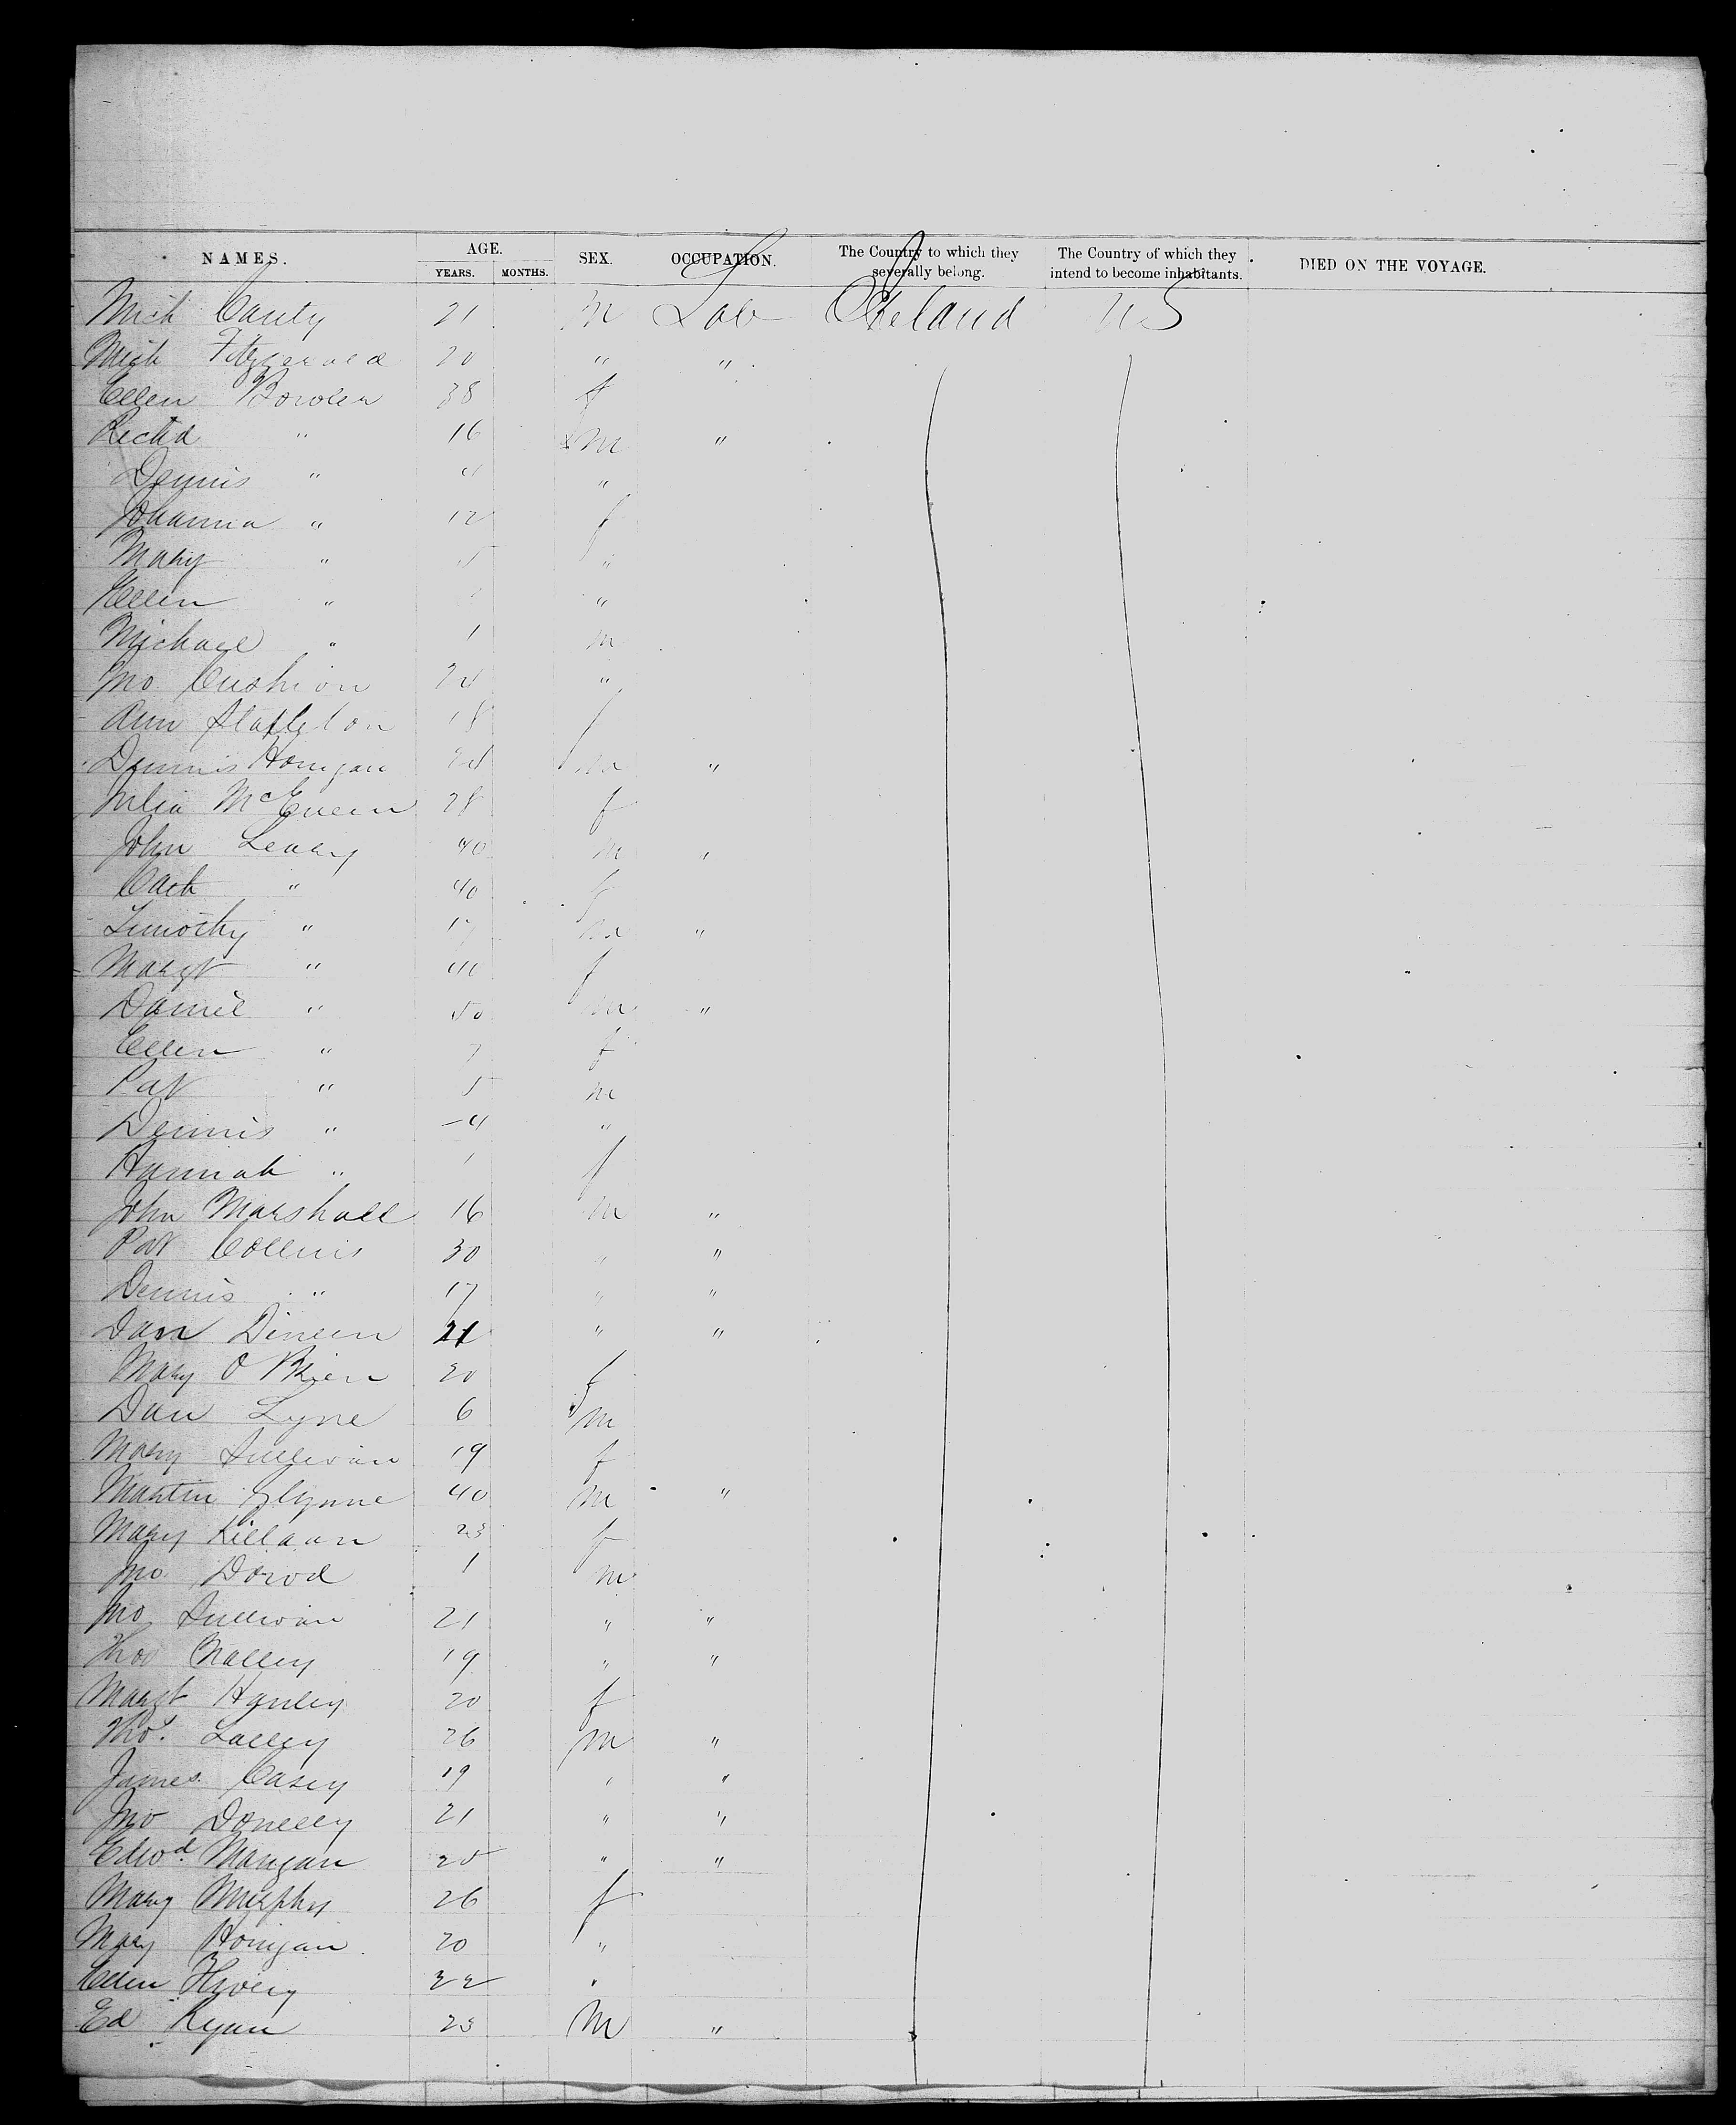 NAMES. AGE. YEARS. MONTHS. SEX. OCCUPATION. The Country to which they severally belong. The Country of which they intend to become inhabitants. DIED ON THE VOYAGE.
Mich Canty 21 m Lab Ireland U S
Mich Fitzgerald 20 " "
Ellen Bowler 38 f
Richd " 16 m "
Dennis " 4 "
Johanna " 12 f
Mary " 5 "
Ellen " "
Michael " 1 m
Jno. Cushion 24 "
Ann Stapleton 18 f
Dennis Honigan 24 m "
Julia McEneen 28 f
John Leary 40 m "
Cath " 40 f
Timothy " 17 m "
Margt " 40 f
Daniel " 50 m "
Ellen " 7 f
Pat " 5 m
Dennis " 4 "
Hannah " 1 f
John Marshall 16 m "
Pat Collins 30 " "
Dennis " 17 " "
Dan Dineen 21 " "
Mary O Brien 20 f
Dan Lyne 6 m
Mary Sullivan 19 f
Martin Glynne 40 m "
Mary Killaan 23 f
Jno. Dowd 1 m
Jno Sullivan 21 " "
Thos Nalley 19 " "
Margt Hanley 20 f
Thos. Lalley 26 m "
James Casey 19 " "
Jno Donelly 21 " "
Edwd. Mangan 20 " "
Mary Murphy 26 f
Mary Honigan 20 "
Ellen 22 "
Ed Ryan 23 m "